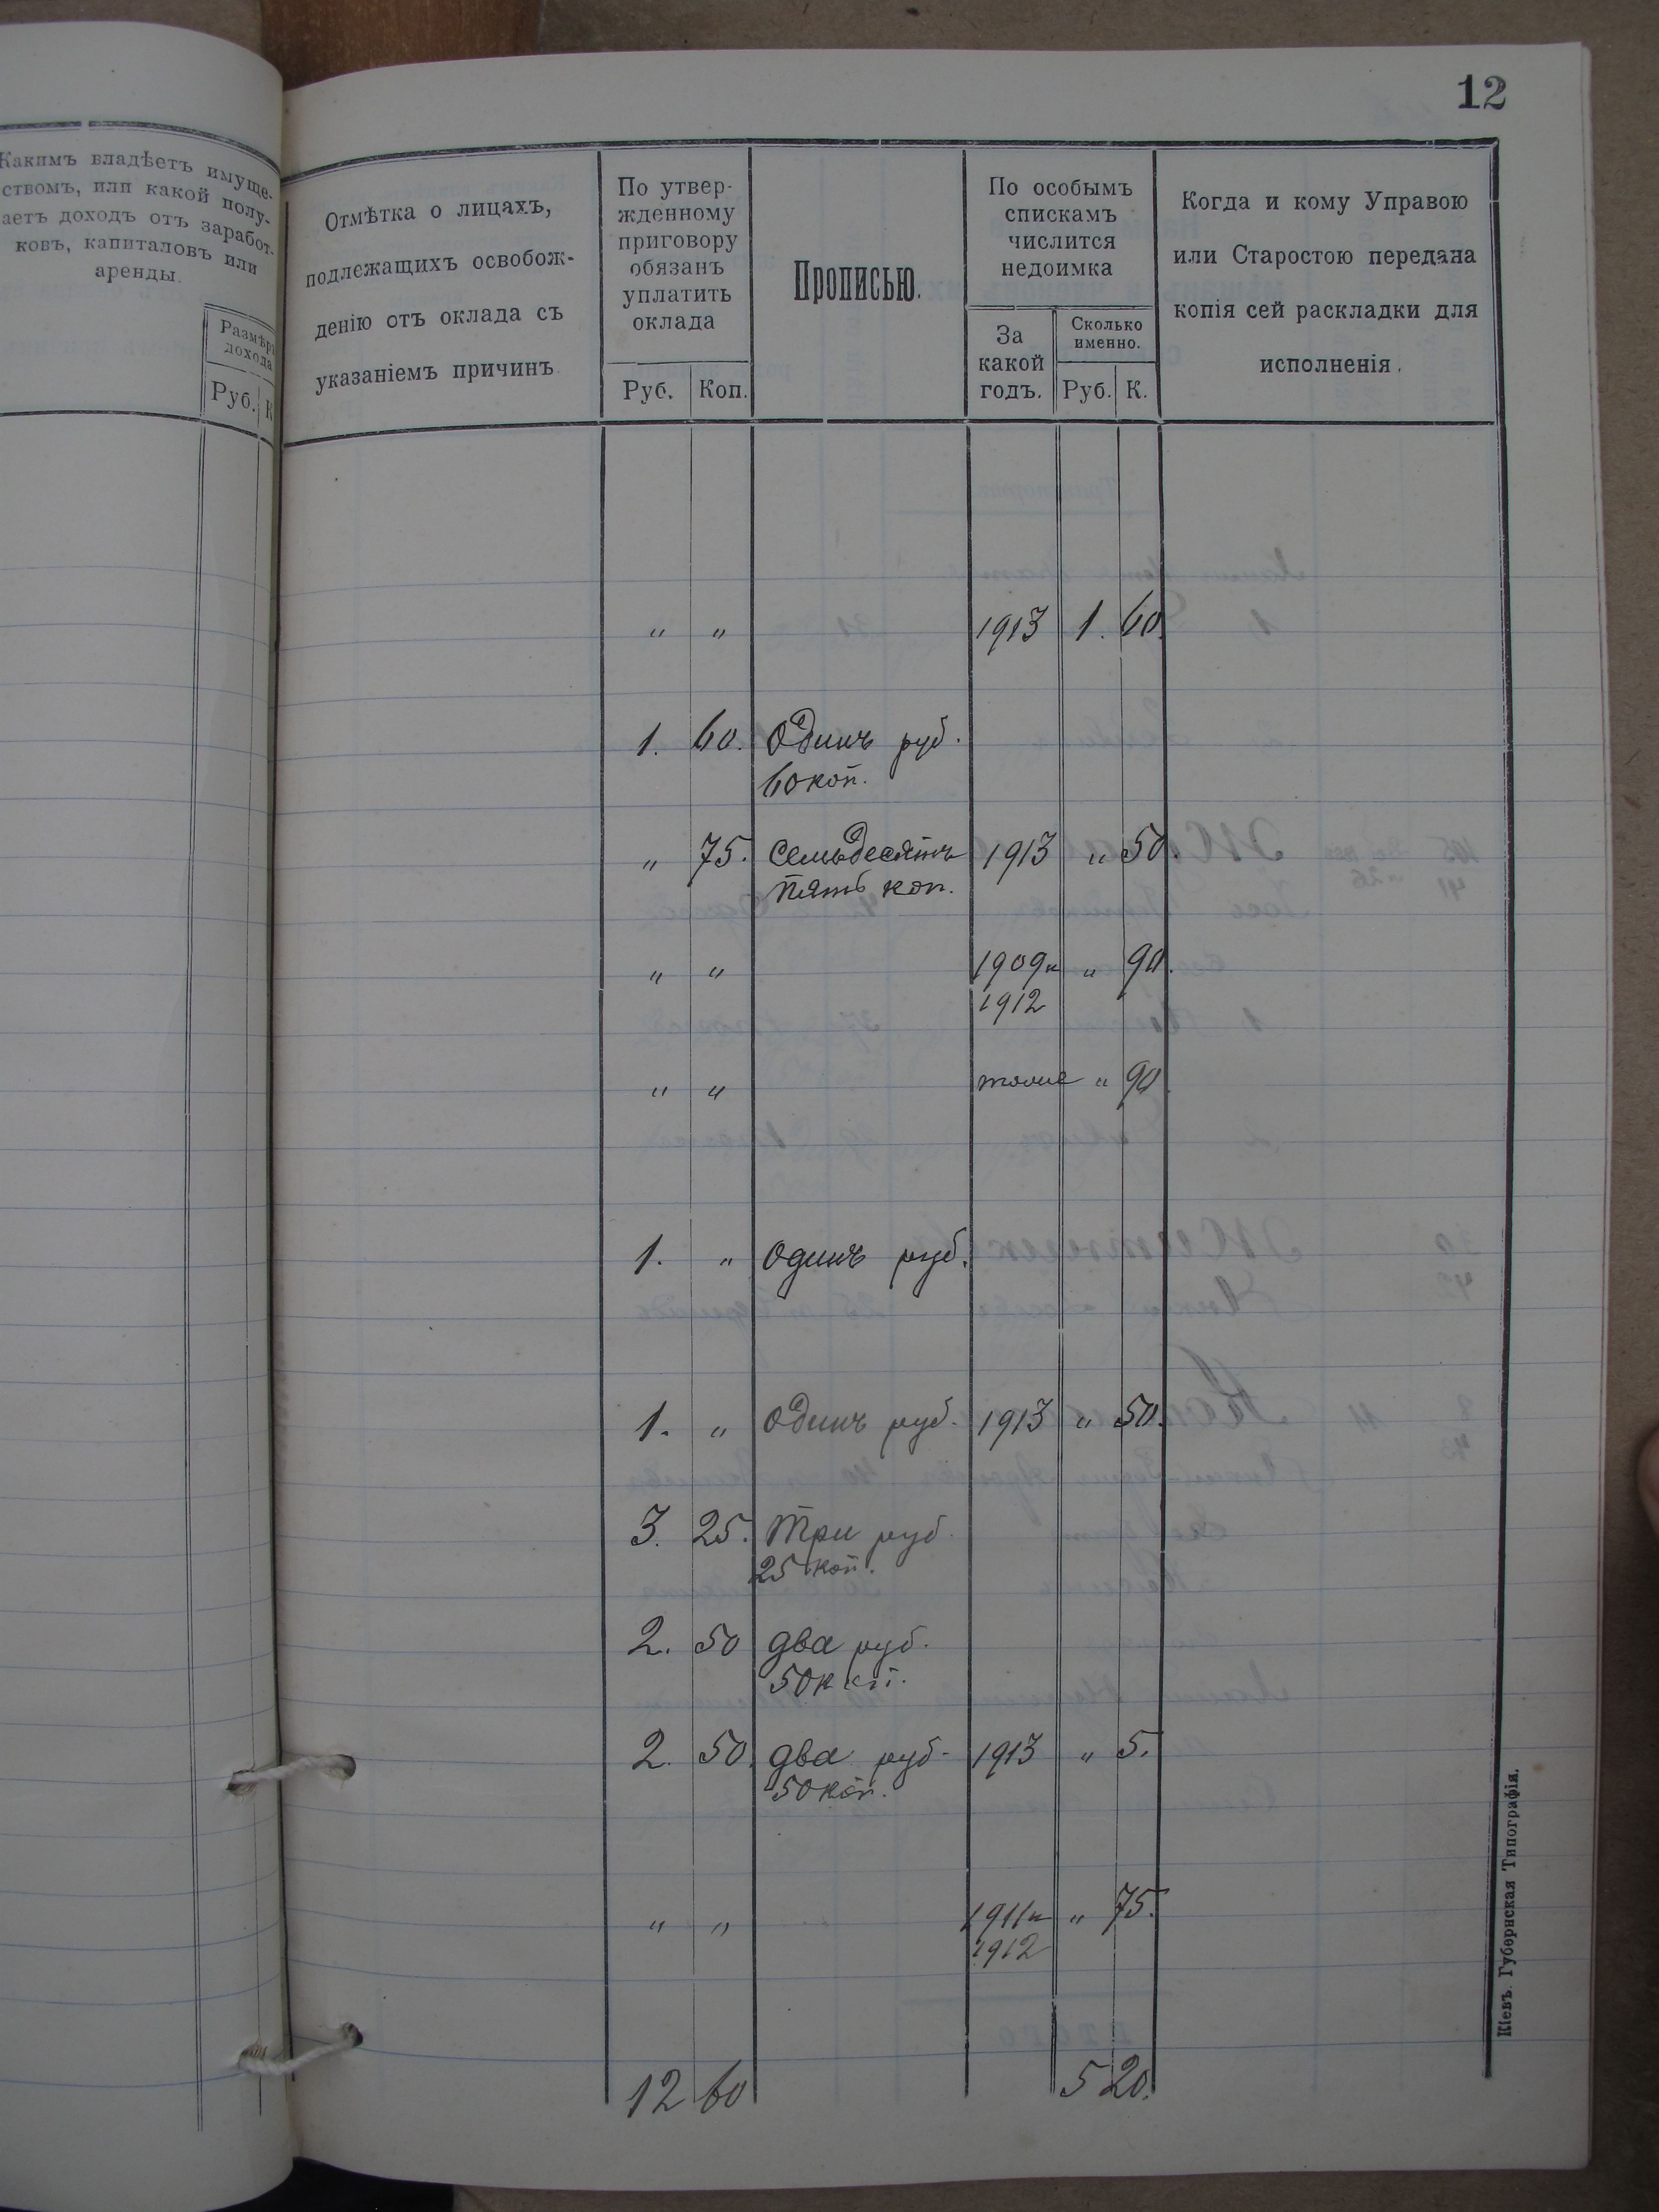 12
Какимъ владѣетъ имуще-
ствомъ, или какой полу-
аетъ доходъ отъ заработ-
ковъ, капиталовъ или
аренды.
Размѣръ
дохода
Руб. К
Отмѣтка о лицахъ,
подлежащихъ освобож-
денію отъ оклада съ
указаніемъ причинъ.
По утвер-
жденному
приговору
обязанъ
уплатить
оклада
Руб. Коп.
Прописью.
По особымъ
спискамъ
числится
недоимка
За
какой
годъ.
Сколько
именно.
Руб. К.
Когда и кому Управою
или Старостою передана
копія сей раскладки для
исполненія.
" " 1913 1. 60.
1. 60. Одинъ руб.
60 коп.
" 75. Семьдесятъ 1913 " 50.
пять коп.
" " 1909 и " 90.
1912
" " тоже " 90.
1. " Одинъ руб.
1. " Одинъ руб. 1913 " 50.
3. 25. Три руб.
25 коп.
2. 50 два руб.
50 коп.
2. 50. два руб. 1913 " 5.
50 коп.
" " 1911 и " 75.
1912
12 60 5 20.
Кіевъ. Губернская Типографія.